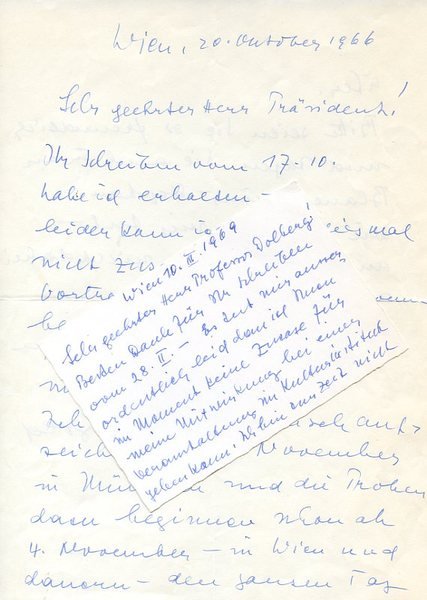 Wien, 20. Oktober 1966
Sehr geehrter Herr Präsident!
Ihr Schreiben vom 17.10.
habe ich erhalten –
leider kann ich
nicht zus
Vortra
be
Ich
zeich November
in Mün und die Proben
dazu beginnen schon ab
4. November – in Wien und
danach – den ganzen Tag
Wien 10. III. 1969
Sehr geehrter Herr Professor Dolberg!
Besten Dank für Ihr Schreiben
vom 28. II. – Es tut mir ausser
ordentlich leid dass ich Ihnen
im Moment keine Zusage für
meine Mitwirkung bei einer
Veranstaltung im
geben kann. Ich bin zur Zeit nicht